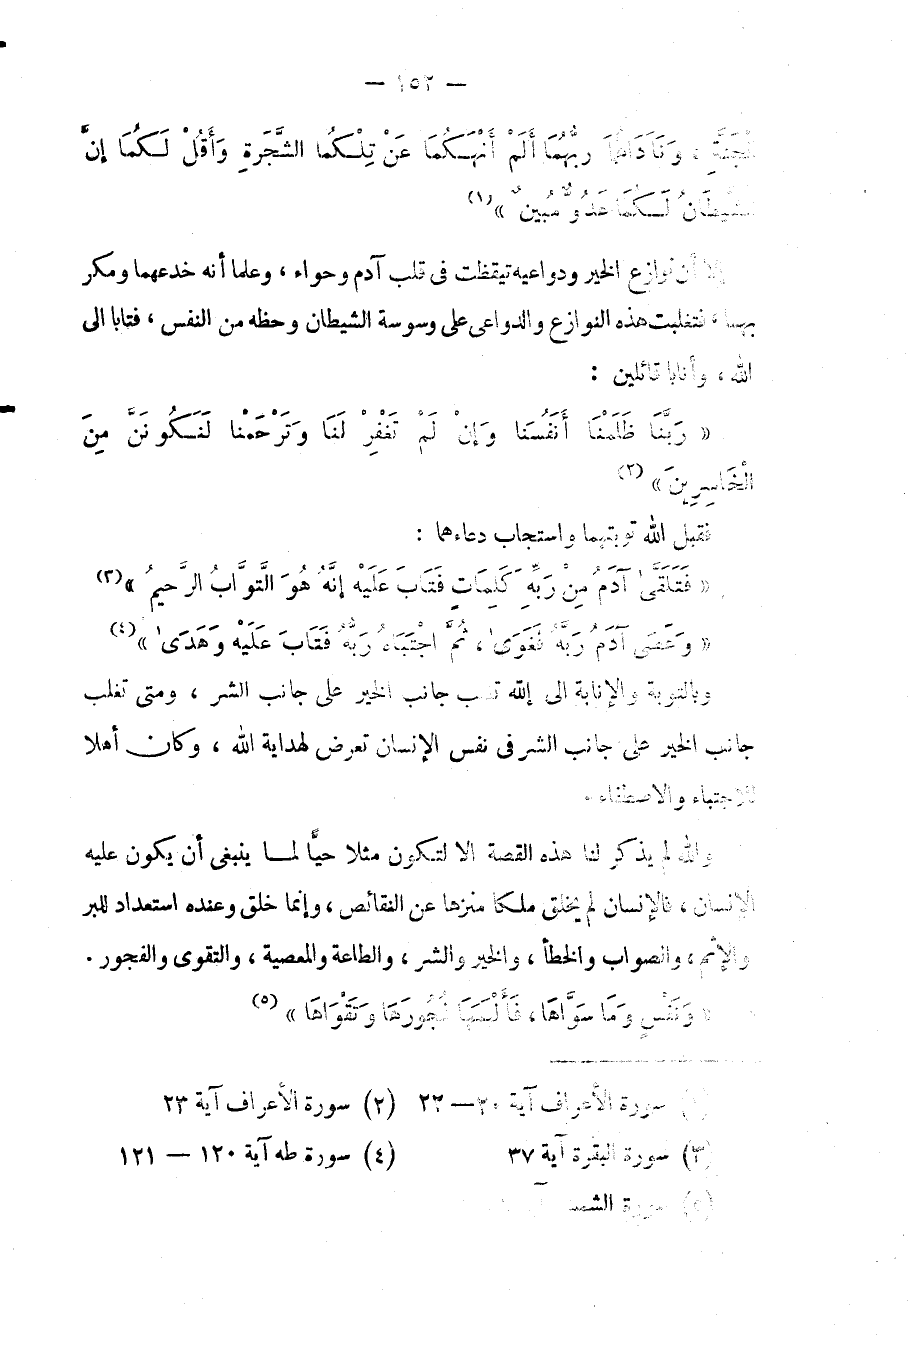 — ١٥٢ —
الْجَنَّةِ ، وَنَادَاهُمَا رَبُّهُمَا أَلَمْ أَنْهَكُمَا عَنْ تِلْكُمَا الشَّجَرَةِ وَأَقُلْ لَكُمَا إِنَّ
الشَّيْطَانَ لَكُمَا عَدُوٌّ مُبِينٌ »(١)
إلا أن نوازع الخير ودواعيه تيقظت فى قلب آدم وحواء ، وعلما أنه خدعهما ومكر
بهما ، فتغلبت هذه النوازع والدواعى على وسوسة الشيطان وحظه من النفس ، فتابا الى
الله ، وأنابا قائلين :
« رَبَّنَا ظَلَمْنَا أَنْفُسَنَا وَإِنْ لَمْ تَغْفِرْ لَنَا وَتَرْحَمْنَا لَنَكُونَنَّ مِنَ
الْخَاسِرِينَ »(٢)
فقبل الله توبتهما واستجاب دعاءهما :
« فَتَلَقَّىٰ آدَمُ مِنْ رَبِّهِ كَلِمَاتٍ فَتَابَ عَلَيْهِ إِنَّهُ هُوَ التَّوَّابُ الرَّحِيمُ »(٣)
« وَعَصَى آدَمُ رَبَّهُ فَغَوَىٰ ، ثُمَّ اجْتَبَاهُ رَبُّهُ فَتَابَ عَلَيْهِ وَهَدَىٰ »(٤)
وبالتوبة والإنابة الى الله جانب الخير على جانب الشر ، ومتى تغلب
جانب الخير على جانب الشر فى نفس الإنسان تعرض لهداية الله ، وكان أهلا
للاجتباء والاصطفاء .
والله لم يذكر لنا هذه القصة الا لتكون مثلا حيًّا لما ينبغى أن يكون عليه
الإنسان ، فالإنسان لم يخلق ملكا منزها عن النقائص ، وإنما خلق وعنده استعداد للبر
والإثم ، والصواب والخطأ ، والخير والشر ، والطاعة والمعصية ، والتقوى والفجور .
« وَنَفْسٍ وَمَا سَوَّاهَا ، فَأَلْهَمَهَا فُجُورَهَا وَتَقْوَاهَا »(٥)
(١) سورة الأعراف آية ٢٠ — ٢٢ (٢) سورة الأعراف آية ٢٣
(٣) سورة البقرة آية ٣٧ (٤) سورة طه آية ١٢٠ — ١٢١
(٥) سورة الشمس